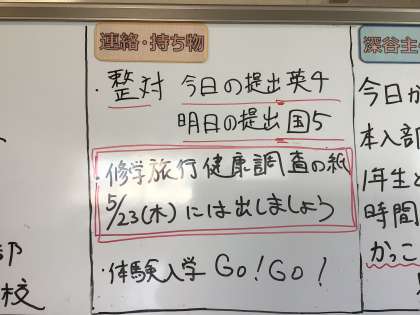 連絡・持ち物
・整対 今日の提出英4
明日の提出国5
・修学旅行健康調査の紙
5/23(木)には出しましょう
・体験入学 GO!GO!
部
校
深谷主
今日か
本入部
1年生と
時間
かっこ